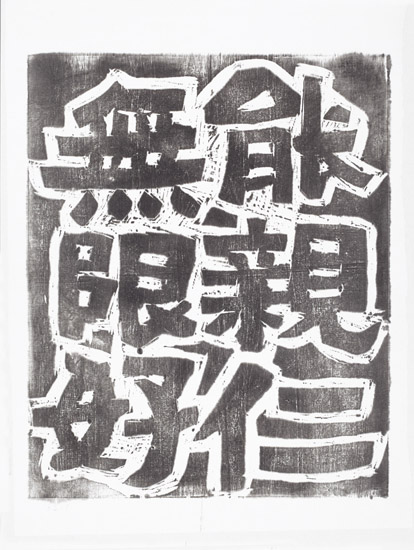 能親仁
無眼好